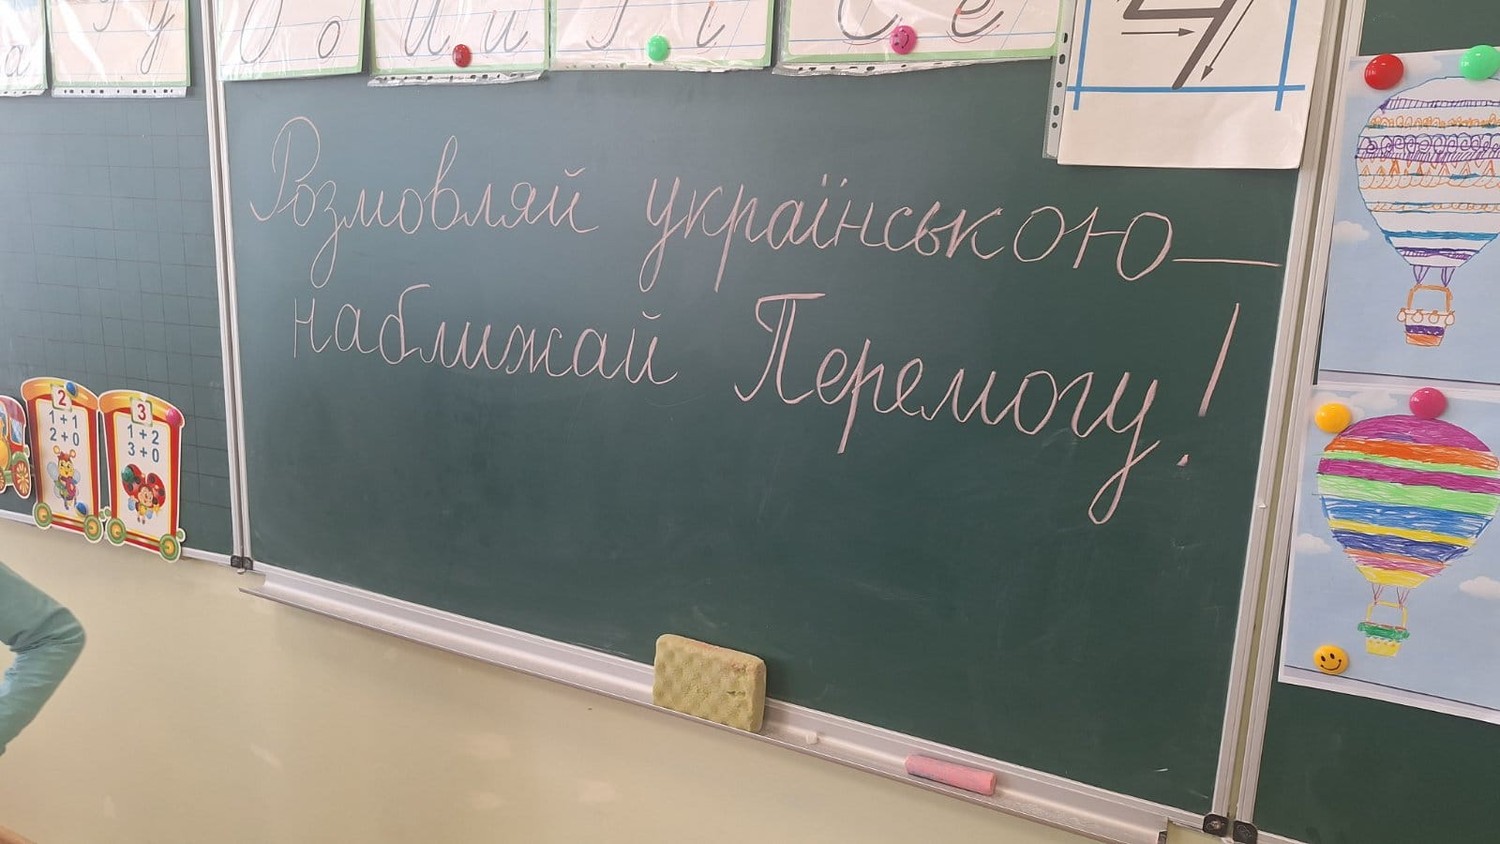 а
У у
О о
И и
Г г
Є є
Ч
Розмовляй українською —
наближай Перемогу!
2
1 + 1
2 + 0
3
1 + 2
3 + 0